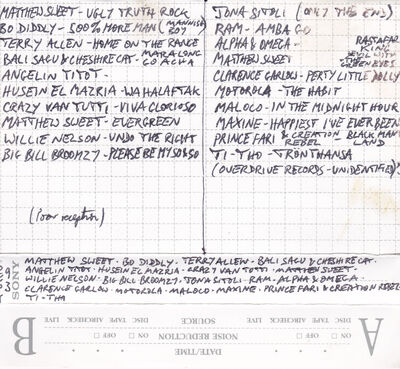 MATTHEW SWEET - UGLY TRUTH ROCK
BO DIDDLY - 500% MORE MAN (MANNISH BOY
TERRY ALLEN - HOME ON THE RANGE
BALI SAGU & CHESHIRE CAT - MARA LONG
ANGELIN TITOT -
HUSEIN EL MAZRIA - WAHALAFTAK
CRAZY VAN TUTTI - VIVA GLORIOSO
MATTHEW SWEET - EVERGREEN
WILLIE NELSON - UNDO THE RIGHT
BIG BILL BROOMZY - PLEASE BE MY SO & SO
(Poor reception)
JONA SITOLI (ONLY THE END)
RAM - AMBA GO
ALPHA & OMEGA - RASTAFAR KING
MATTHEW SWEET DEVIL WITH GREEN EYES
CLARENCE GARLOW - PERTY LITTLE DOLLY
MOTOROLA - THE HABIT
MALOCO - IN THE MIDNIGHT HOUR
MAXINE - HAPPIEST I'VE EVER BEEN
PRINCE FARI & CREATION REBEL BLACK MAN LAND
TI-THO - TRÖNTHANSA
(OVERDRIVE RECORDS - UNIDENTIFIED)
MATTHEW SWEET - BO DIDDLY - TERRY ALLEN - BALI SAGU & CHESHIRE CAT -
ANGELIN TITOT - HUSEIN EL MAZRIA - CRAZY VAN TOTTI - MATTHEW SWEET -
WILLIE NELSON - BIG BILL BROOMZY - JONA SITOLI - RAM - ALPHA & OMEGA -
CLARENCE GARLOW - MOTOROLA - MALOCO - MAXINE - PRINCE FARI & CREATION REBEL
TI-THO
SONY
A
DISC TAPE AIRCHECK LIVE
SOURCE
DISC TAPE AIRCHECK LIVE
ON OFF
NOISE REDUCTION
ON OFF
DATE/TIME
B